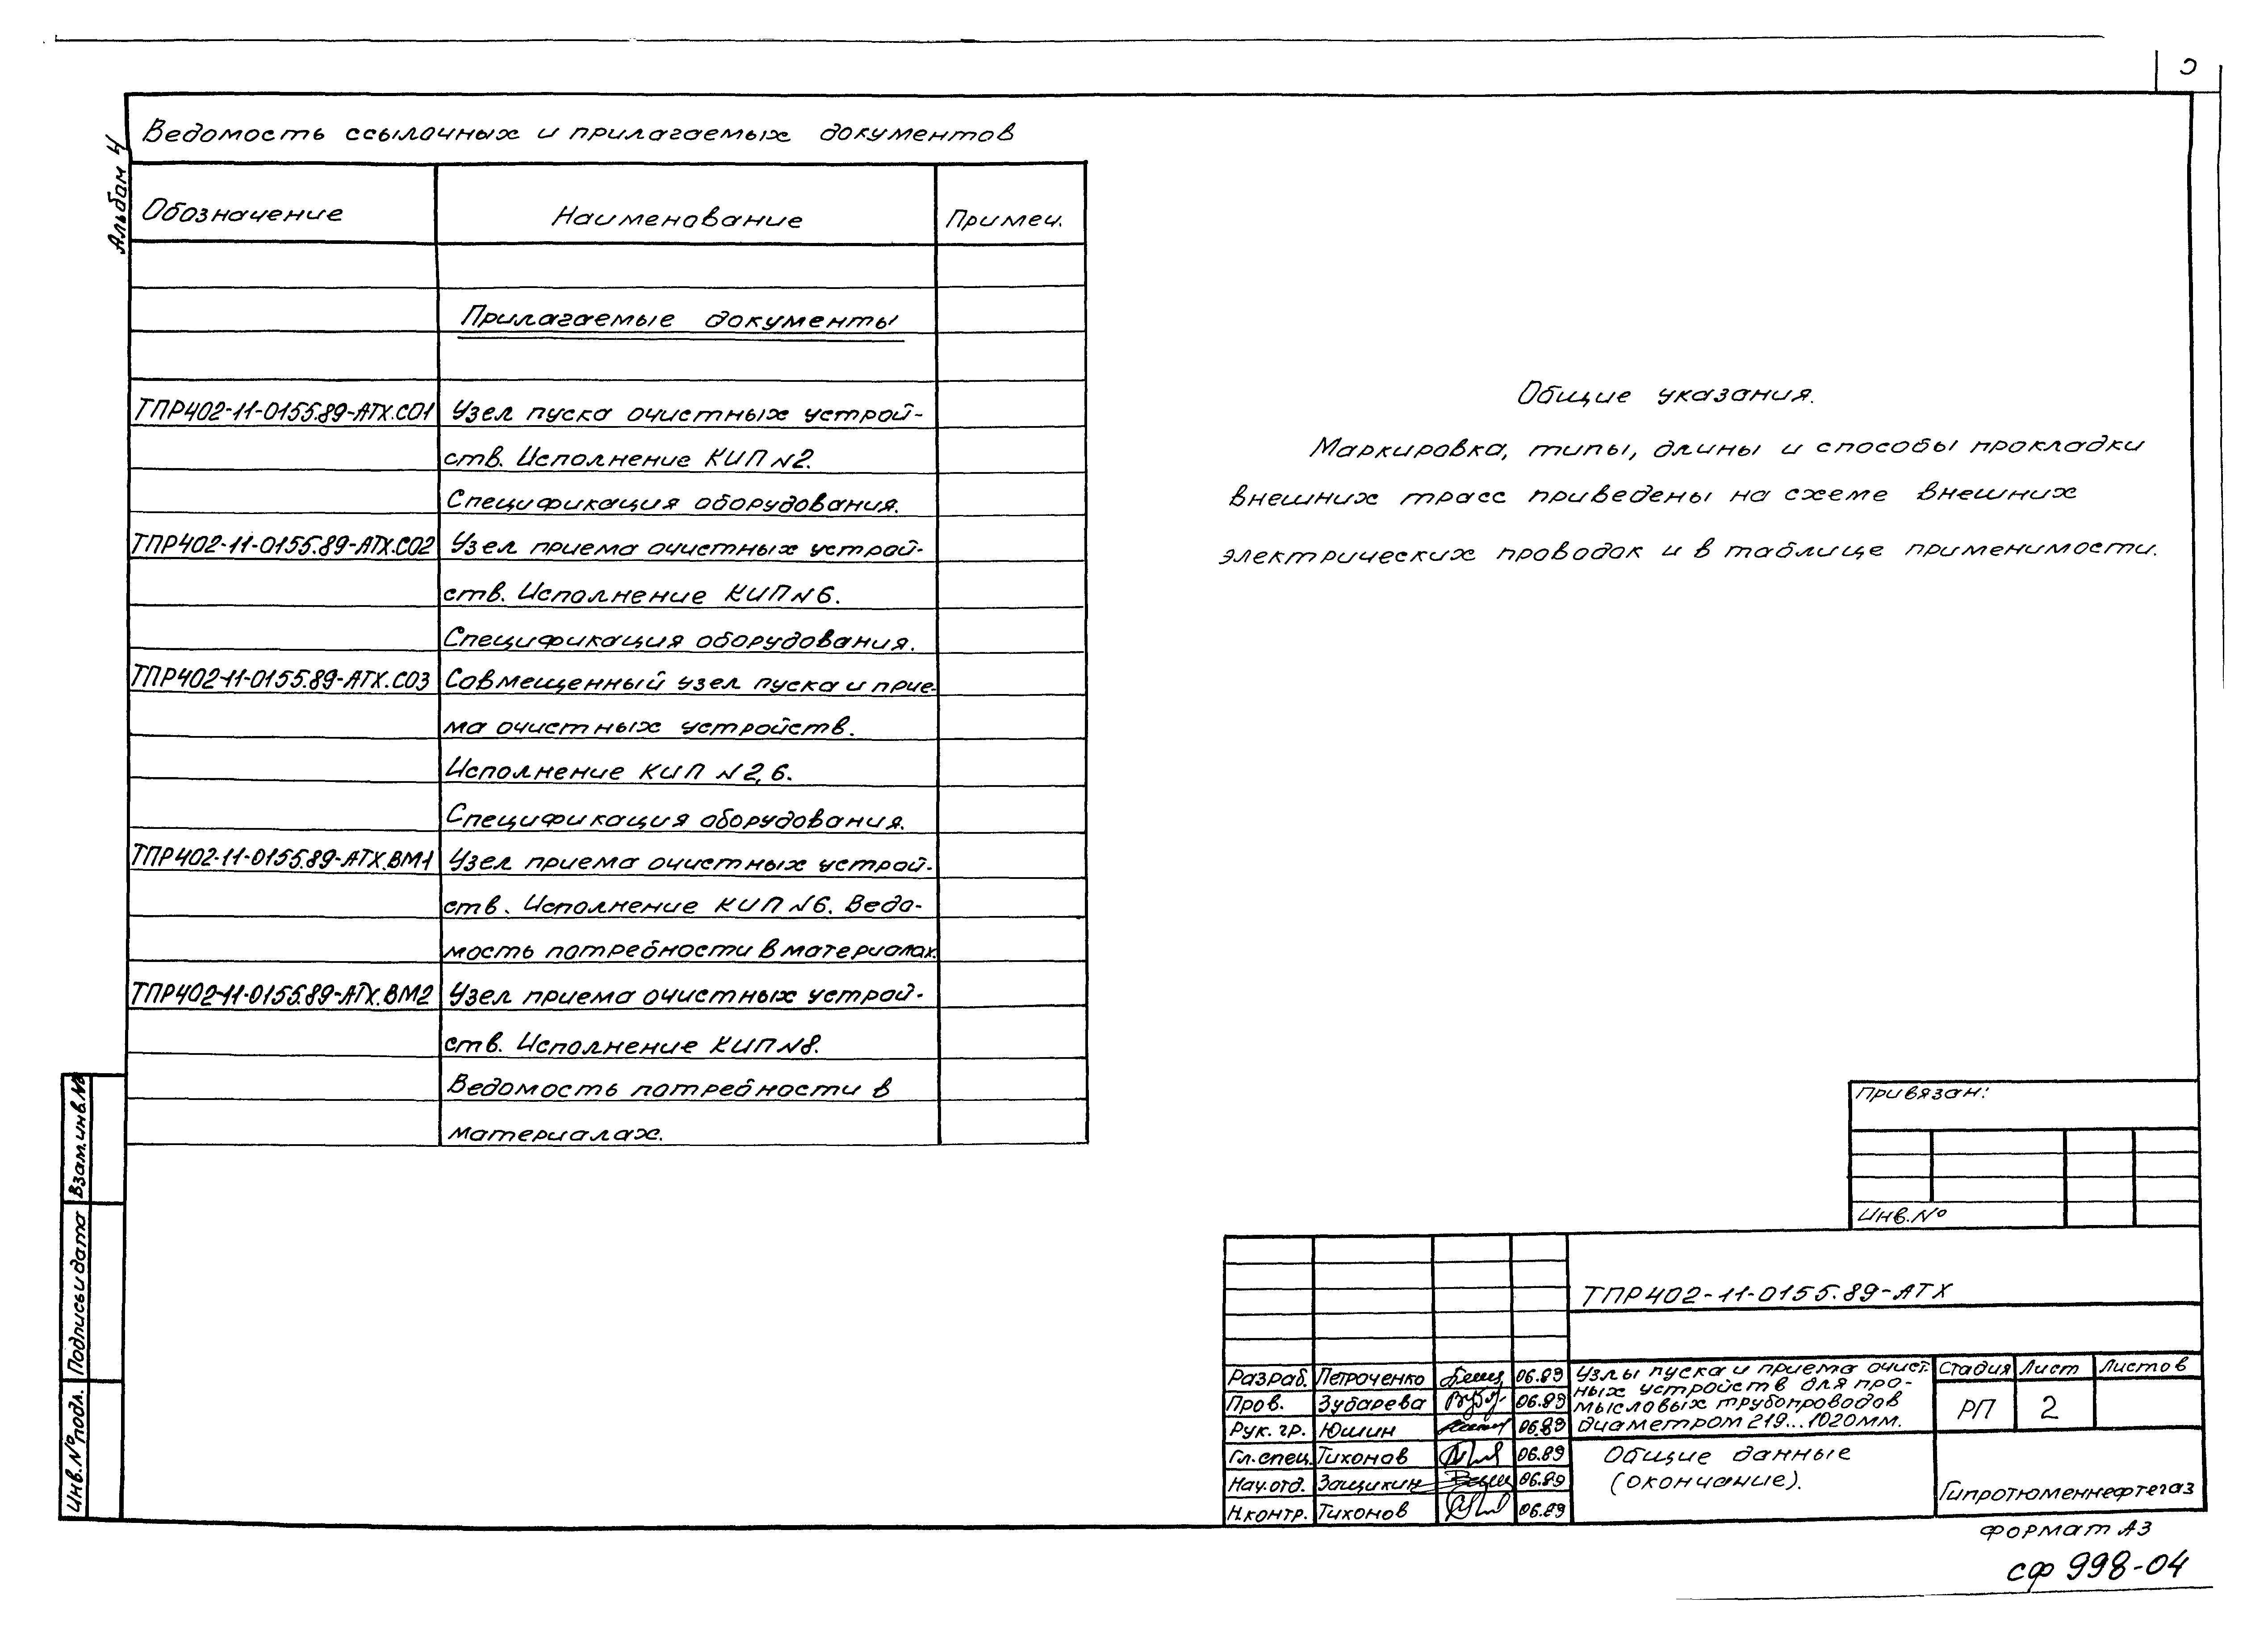 Альбом 4
Ведомость ссылочных и прилагаемых документов
Обозначение Наименование Примеч.
Прилагаемые документы
ТПР402-11-0155.89-АТХ.СО1 Узел пуска очистных устрой-
ств. Исполнение КИП N2.
Спецификация оборудования.
ТПР402-11-0155.89-АТХ.СО2 Узел приема очистных устрой-
ств. Исполнение КИП N6.
Спецификация оборудования.
ТПР402-11-0155.89-АТХ.СО3 Совмещенный узел пуска и прие-
ма очистных устройств.
Исполнение КИП N2,6.
Спецификация оборудования.
ТПР402-11-0155.89-АТХ.ВМ1 Узел приема очистных устрой-
ств. Исполнение КИП N6. Ведо-
мость потребности в материалах.
ТПР402-11-0155.89-АТХ.ВМ2 Узел приема очистных устрой-
ств. Исполнение КИП N8.
Ведомость потребности в
материалах.
Общие указания.
Маркировка, типы, длины и способы прокладки
внешних трасс приведены на схеме внешних
электрических проводок и в таблице применимости.
Взам.инв.№
Подпись и дата
Инв.№ подл.
Привязан:
Инв.№
ТПР402-11-0155.89-АТХ
Разраб. Петроченко 06.89
Пров. Зубарева 06.89
Рук. гр. Юшин 06.89
Гл.спец. Тихонов 06.89
Нач.отд. Защикин 06.89
Н.контр. Тихонов 06.89
Узлы пуска и приема очист-
ных устройств для про-
мысловых трубопроводов
диаметром 219...1020мм.
Стадия Лист Листов
РП 2
Общие данные
(окончание).
Гипротюменнефтегаз
Формат А3
сф 998-04